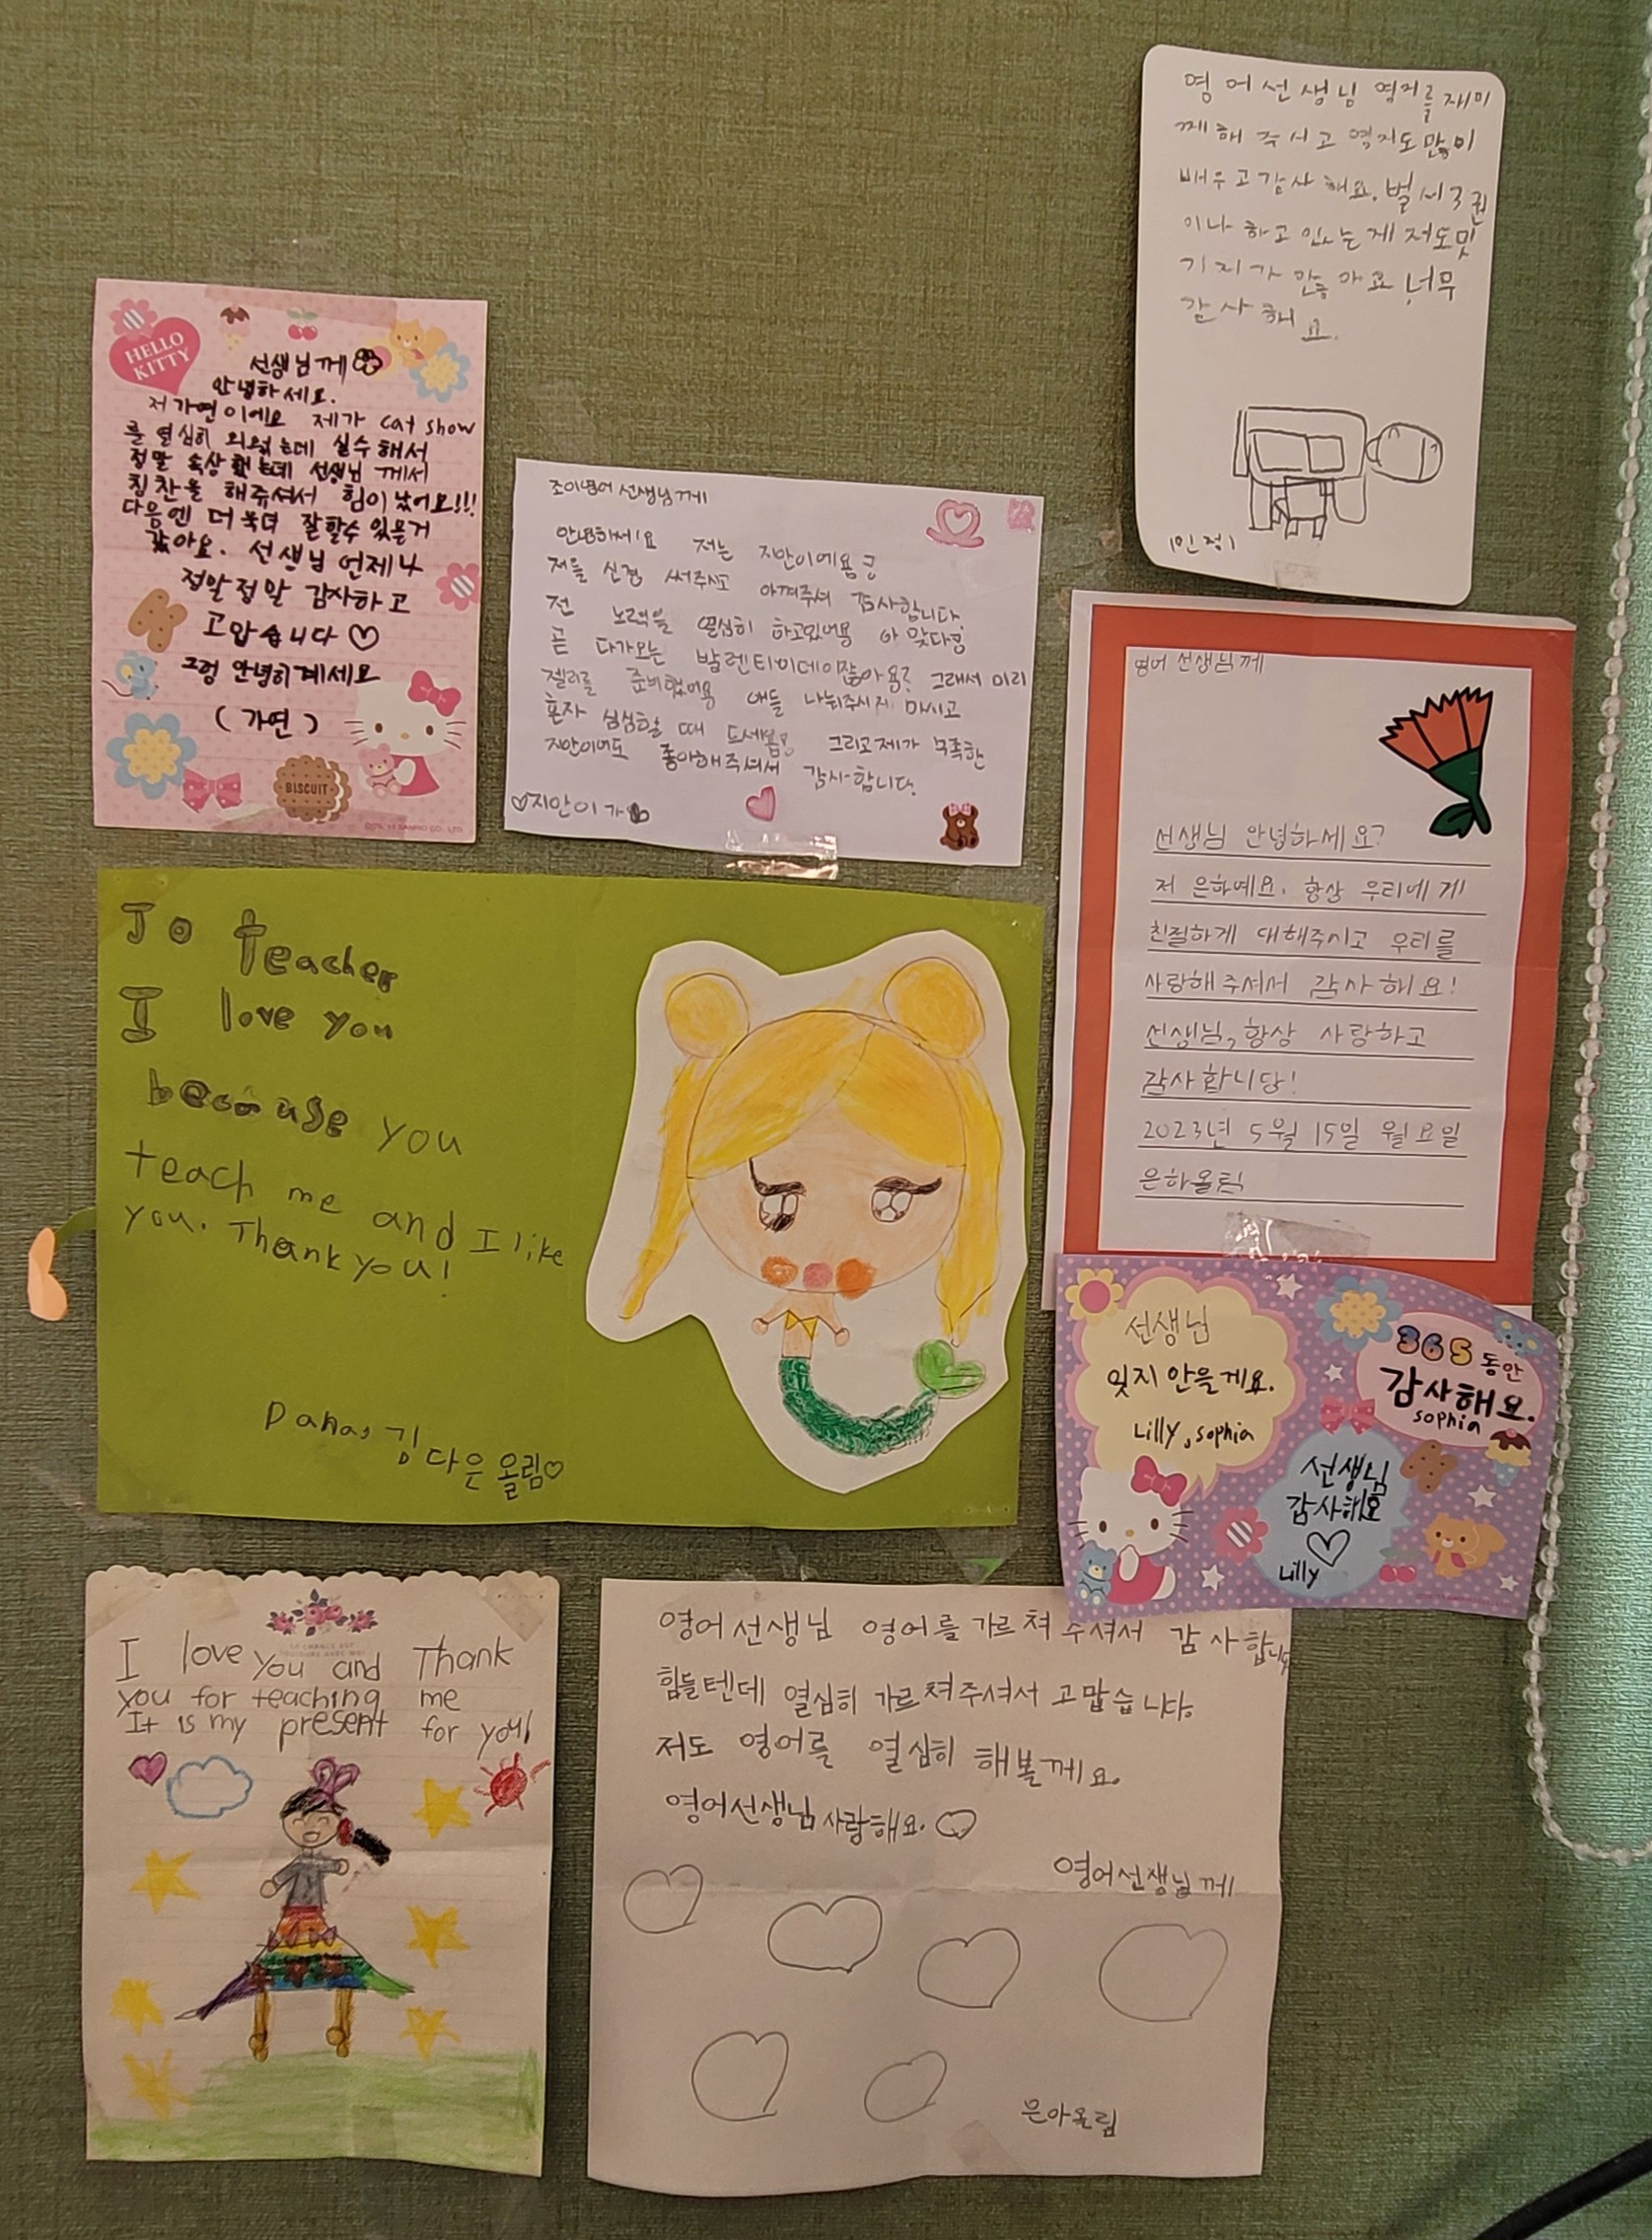 영어선생님 영어를 재미
께해 주시고 영어도 많이
배우고 감사해요. 벌써 3권
이나 하고 있는게 저도 밋
기지가 안아요 너무
감사해요.
(민정)
HELLO
KITTY
선생님께
안녕하세요.
저 가연이에요 제가 cat show
를 열심히 외웠는데 실수해서
정말 속상했는데 선생님께서
칭찬을 해주셔서 힘이 났어요!!!
다음엔 더욱더 잘할수 있을거
같아요. 선생님 언제나
정말정말 감사하고
고맙습니다 ♡
그럼 안녕히계세요
(가연)
BISCUIT
조이영어 선생님께
안녕하세요 저는 지안이에용
저를 신경 써주시고 아껴주셔 감사합니다
전 노력을 열심히 하고있어용 아 맞다
곧 다가오는 발렌타이데이잖아용? 그래서 미리
젤리를 준비했어용 애들 나눠주시지 마시고
혼자 심심할 때 드세용! 그리고 제가 부족한
지안이여도 좋아해주셔서 감사합니다.
♡지안이가
영어 선생님께
선생님 안녕하세요?
저 은하예요. 항상 우리에게
친절하게 대해주시고 우리를
사랑해주셔서 감사해요!
선생님, 항상 사랑하고
감사합니당!
2023년 5월 15일 월요일
은하올림
To teacher
I love you
because you
teach me and I like
you. Thank you!
Dana, 김다은 올림♡
선생님
잊지 안을게요.
Lilly, sophia
365 동안
감사해요.
sophia
선생님
감사해요
♡
Lilly
I love you and Thank
you for teaching me
It is my present for you!
영어선생님 영어를 가르쳐 주셔서 감사합니다
힘들텐데 열심히 가르쳐주셔서 고맙습니다.
저도 영어를 열심히 해볼께요.
영어선생님 사랑해요. ♡
영어선생님께
은아올림